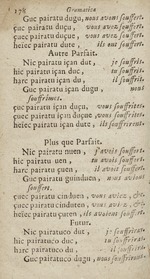 174 Gramatica
Guc pairatu dugu, nous avons souffert.
çuec pairatu duçu, vous avez souffert.
çuec pairatu duçue, vous avez souffert.
heiec pairatu dute, ils ont souffert.
Autre Parfait.
Nic pairatu içan dut, je souffris.
hic pairatu içan duc, tu souffris.
harc pairatu içan du, il souffrit.
Guc pairatu içan dugu, nous
souffrimes.
çuc pairatu içan duçu, vous souffrites.
çuec pairatu içan duçue, vous souffrites.
heiec pairatu içan dute, ils souffrirent.
Plus que Parfait.
Nic pairatu nuen, j'avois souffert.
hic pairatu uen, tu avois souffert.
harc pairatu çuen, il avoit souffert.
Guc pairatu guinduen, nous avions
souffert.
çuc pairatu cinduen, vous aviez, &c.
çuec pairatu cinduten, vous aviez, &c.
heiec pairatu çuten, ils avoient souffert.
Futur.
Nic pairatuco dut, je souffrirai.
hic pairatuco duc, tu souffriras.
harc pairatuco du, il souffrira.
Guc pairatuco dugu, nous